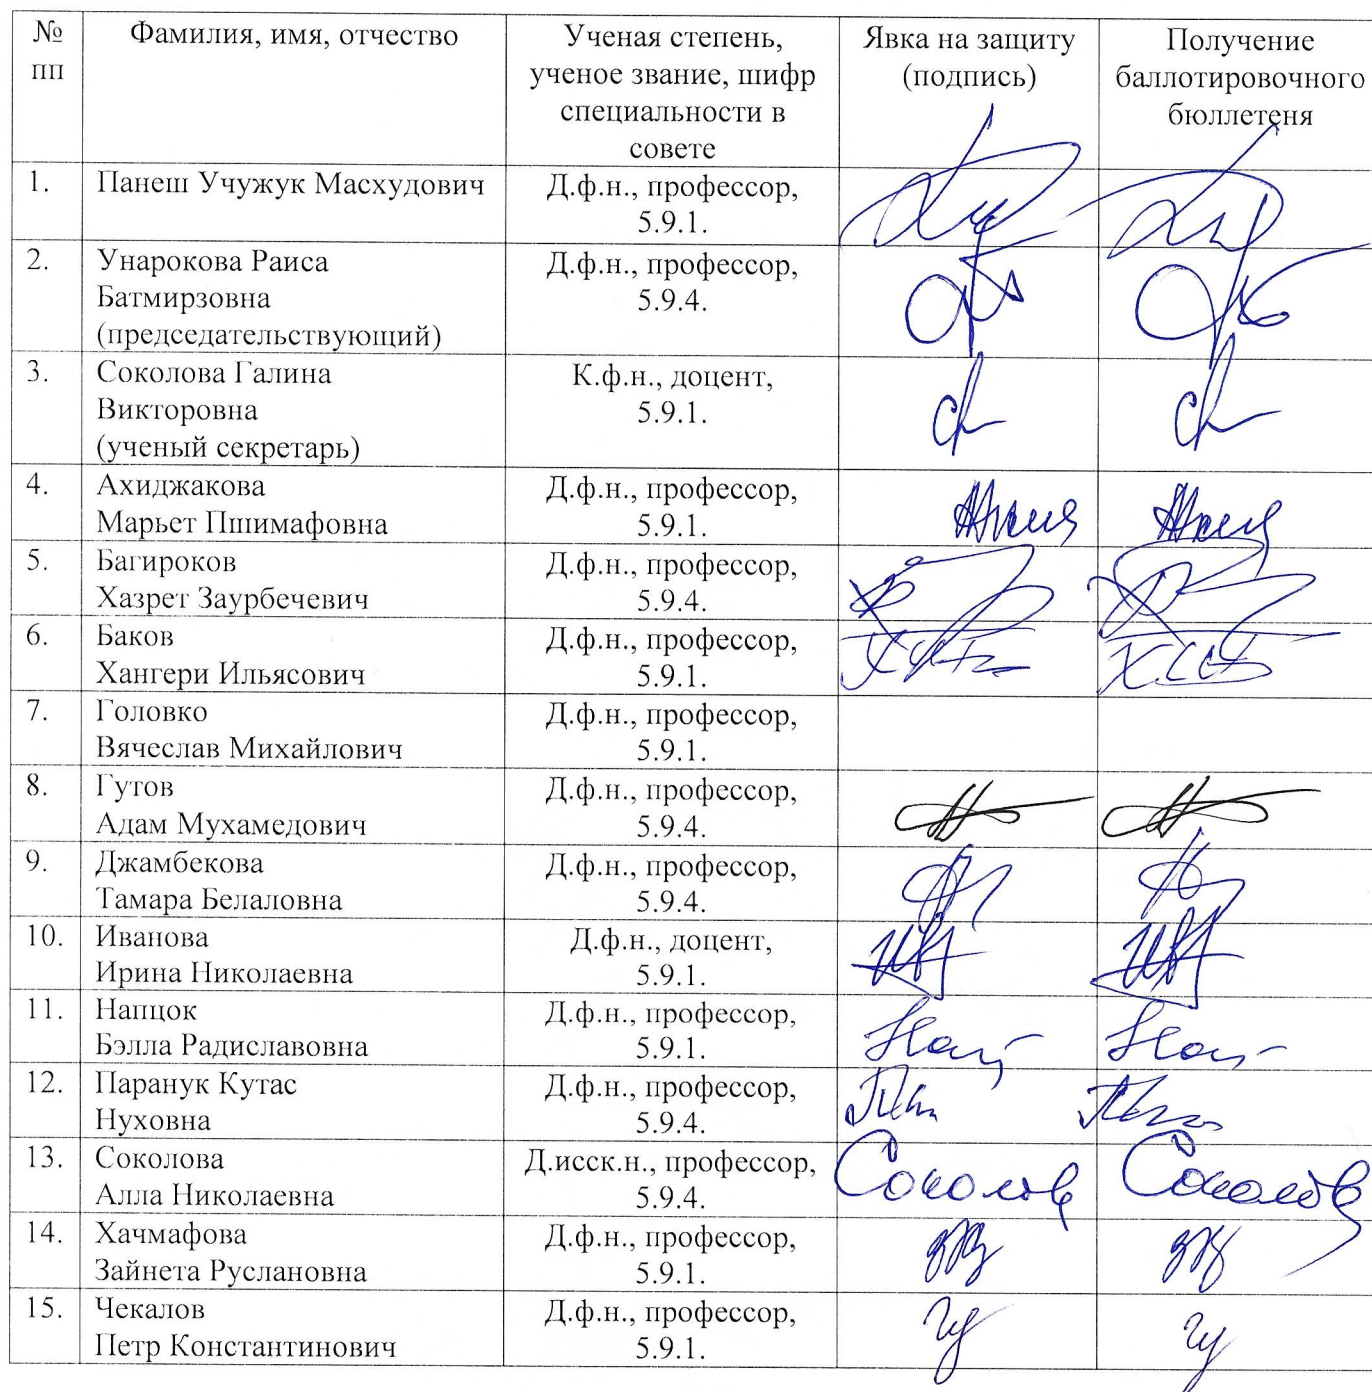 №
пп
Фамилия, имя, отчество
Ученая степень,
ученое звание, шифр
специальности в
совете
Явка на защиту
(подпись)
Получение
баллотировочного
бюллетеня
1.
Панеш Учужук Масхудович
Д.ф.н., профессор,
5.9.1.
2.
Унарокова Раиса
Батмирзовна
(председательствующий)
Д.ф.н., профессор,
5.9.4.
3.
Соколова Галина
Викторовна
(ученый секретарь)
К.ф.н., доцент,
5.9.1.
4.
Ахиджакова
Марьет Пшимафовна
Д.ф.н., профессор,
5.9.1.
5.
Багироков
Хазрет Заурбечевич
Д.ф.н., профессор,
5.9.4.
6.
Баков
Хангери Ильясович
Д.ф.н., профессор,
5.9.1.
7.
Головко
Вячеслав Михайлович
Д.ф.н., профессор,
5.9.1.
8.
Гутов
Адам Мухамедович
Д.ф.н., профессор,
5.9.4.
9.
Джамбекова
Тамара Белаловна
Д.ф.н., профессор,
5.9.4.
10.
Иванова
Ирина Николаевна
Д.ф.н., доцент,
5.9.1.
11.
Напцок
Бэлла Радиславовна
Д.ф.н., профессор,
5.9.1.
12.
Паранук Кутас
Нуховна
Д.ф.н., профессор,
5.9.4.
13.
Соколова
Алла Николаевна
Д.исск.н., профессор,
5.9.4.
14.
Хачмафова
Зайнета Руслановна
Д.ф.н., профессор,
5.9.1.
15.
Чекалов
Петр Константинович
Д.ф.н., профессор,
5.9.1.